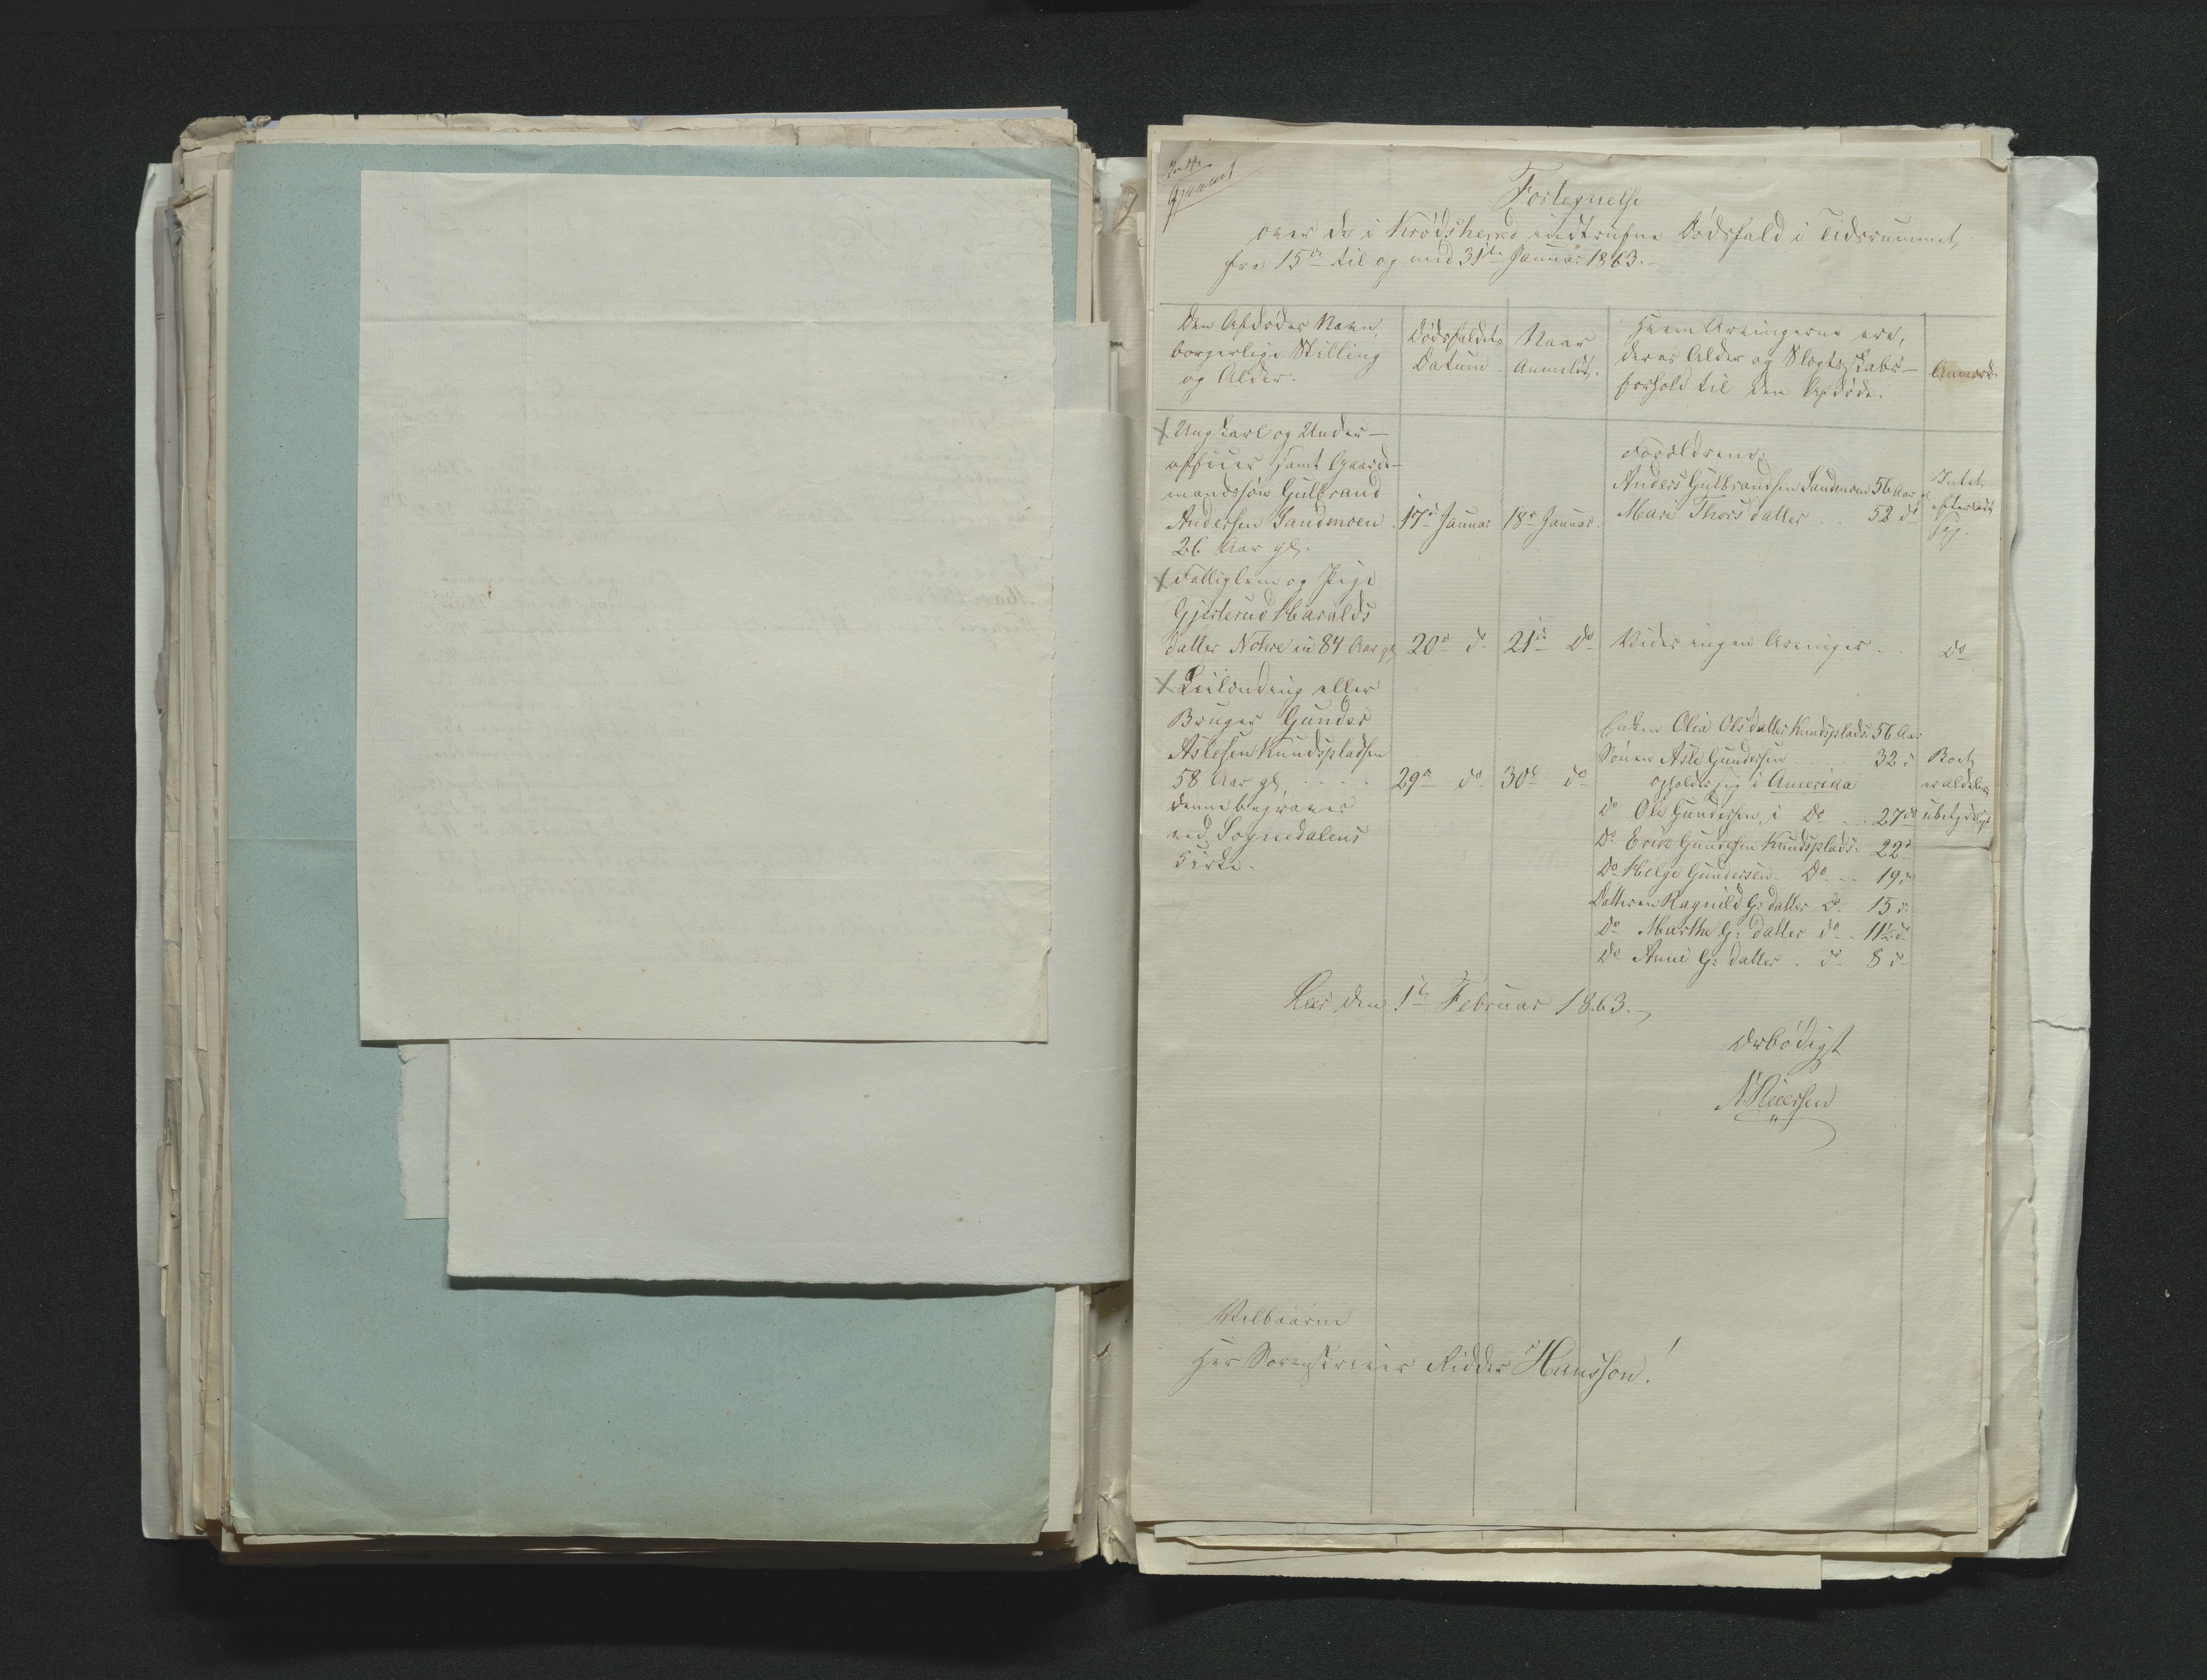 Fortegnelse
over de i Krødsherred indtrufne Dødsfald i Tidsrummet
fra 15de til og med 31te Januar 1863.
Den Afdødes Navn, borgerlige Stilling og Alder.
Dødsfaldets Datum.
Naar Anmeldt.
Hvem Arvingerne ere, deres Alder og Slægtsskabs-forhold til den Afdøde.
Anmærk.
Ungkarl og Under-
officier samt Gaard-
mandssøn Gulbrand
Andersen Sandmoen
26 Aar gl.
17de Januar
18de Januar
Forældrene:
Anders Gulbrandsen Sandmoen 56 Aar gl
Mari Thorsdatter . . 52 do
Intet
efterladt
sig.
Fattiglem og Pige
Gjertrud Haralds
datter Nohre in 84 Aar gl
20de do
21de do
Vides ingen Arvinger.
do
Leilænding eller
Bruger Gunder
Aslesen Kundspladsen
58 Aar gl.
denne begraves
ved Sognedalens
Kirke.
29de do
30te do
Enken Olia Olsdatter Kundsplads. 56 Aar
Sönen Asle Gundersen 32 d
opholder sig i Amerika
do Ole Gundersen, i do . . 27 do
do Erik Gundersen Kundsplads. 22 d
do Helge Gundersen. do . . 19 d
Datteren Ragnild G: datter do . 15 d
do Marthe G: datter do . 11½ d
do Anne G: datter . do 8 d
Boet
er aldeles
ubetydeligt
den 1te Februar 1863.
Ærbødigt
Velbaarne
Herr Sorenskriver Ridder Hansson!